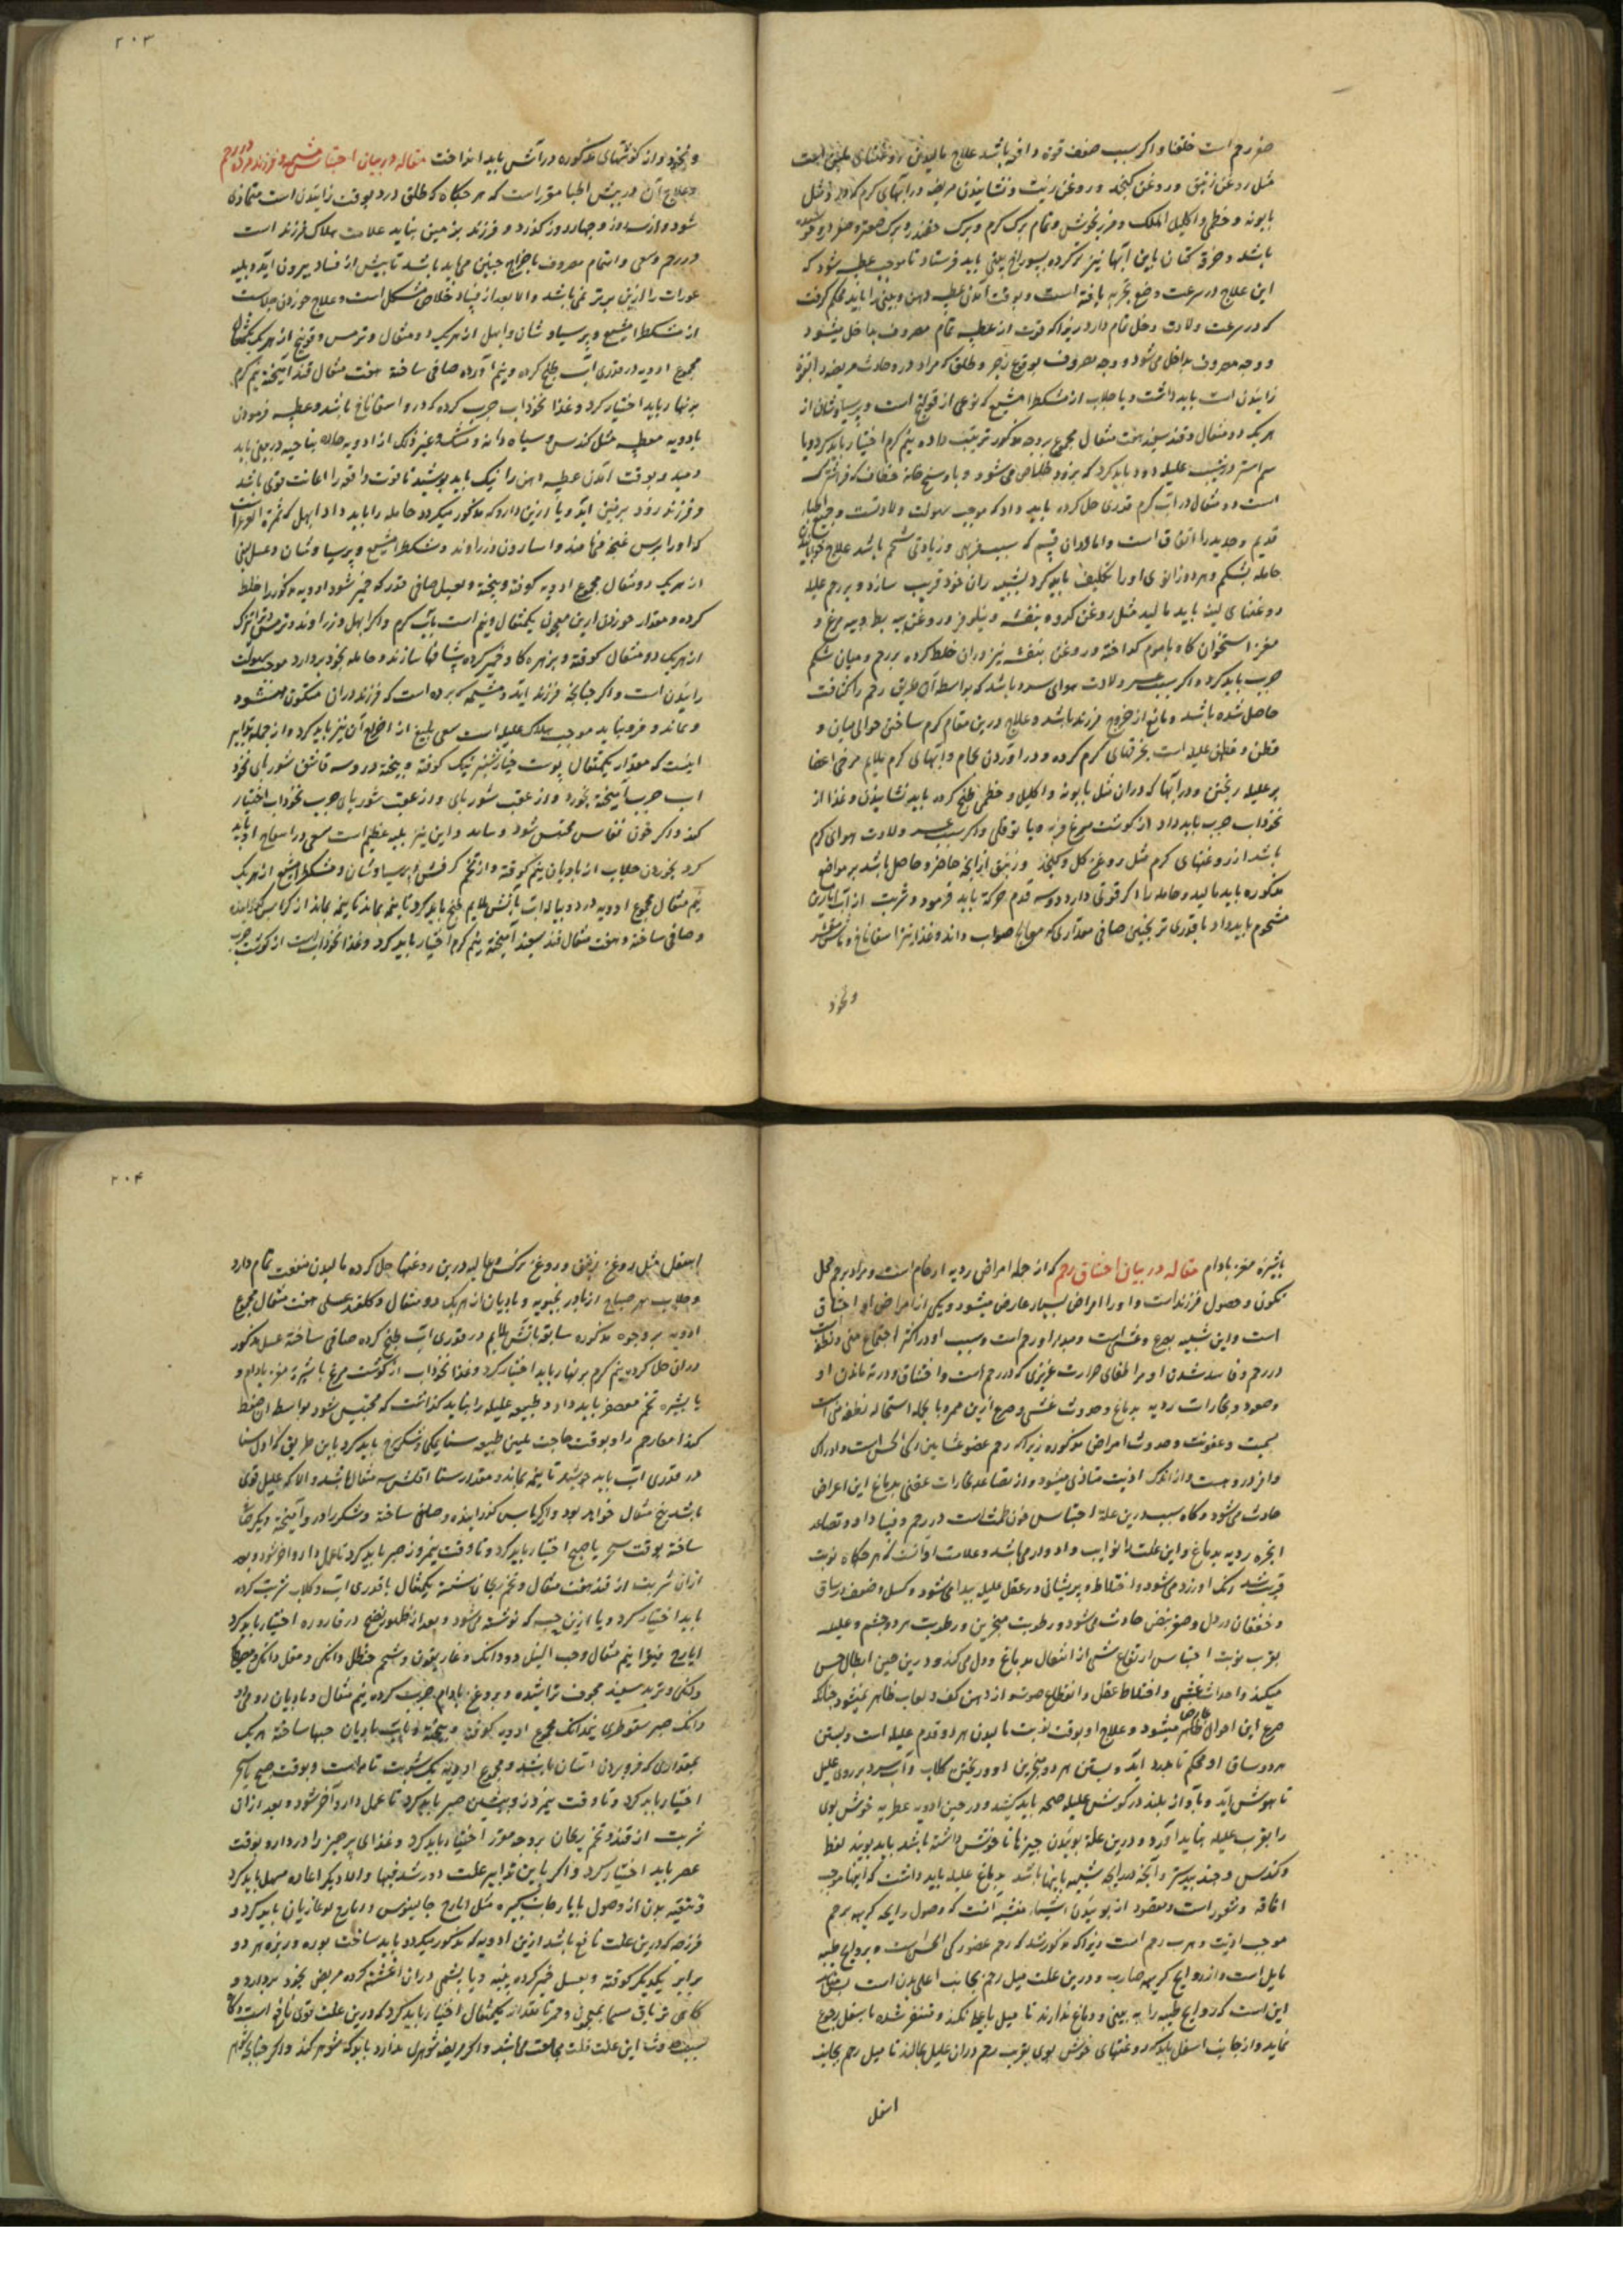 صغر رحم است خلقتا و اگر سبب ضعف قوة دافعه باشد علاج مالیدن روغنهای ملین است
مثل روغن زنبق و روغن کنجد و روغن زیت و نشانیدن مریضه در ابهای گرم که در او مثل
بابونه و خطمی و اکلیل الملک و مرزنجوش و نمام برک کرم و برک
باشد و خرقه کتان باین ابها نیز تر کرده بسوراخ بینی باید فرستاد تا موجب عطسه شود که
این علاج در سرعت وضع تجربه یافته است و بوقت آمدن عطسه دهن و بینی را باید محکم گرفت
که در سرعت ولادت دخل تمام دارد زیرا که قوت از عطسه تمام مصروف بداخل میشود
و وجه مصروف بداخل می شود و وجه مصروف بوقوع زجر و طلق که مراد درد حادث مریضه در
زائیدن است باید داشت و یا جلاب از مشکطرامشیع که نوعی از فوتنج است و پرسیاوشان از
هر یک دو مثقال و قند سفید هفت مثقال مجموع بوجه مذکور ترتیب داده نیم گرم اختیار باید کرد و یا
سم استر در شیب علیله دود باید کرد که بزودی خلاص می شود و یا
است دو مثقال در آب گرم قدری حل کرده باید داد که موجب سهولت ولادتست و جمیع اطباء
قدیم و جدید را اتفاق است و اما در ان قسم که سبب فربهی و زیادتی شحم باشد علاج
حامله بشکم و هر دو زانوی او را تکلیف باید کرد بشیب ران خود قریب سازد و بر رحم علیله
روغنهای لینه باید مالید مثل روغن کدو و بنفشه و نیلوفر و روغن پیه بط و پیه مرغ و
مغز استخوان کاو با موم کداخته و روغن بنفشه نیز دران خلط کرده بر رحم و میان شکم
چرب باید کرد و اگر سبب عسر ولادت هوای سرد باشد که بواسطه آن طریق رحم را کثافت
حاصل شده باشد و مانع از خروج فرزند باشد و علاج درین مقام گرم ساختن حوالی میان و
قطن و بطن علیله است بخرقهای گرم کرده و در اوردن بحمام و ابهای گرم ملایم مرخی اعضا
بر علیله ریختن و در ابها که دران مثل بابونه و اکلیل و خطمی طبخ کرده باید نشانیدن و غذا از
نخوداب چرب باید داد از گوشت مرغ فربه و یا توقلی و اگر سبب عسر ولادت هوای گرم
باشد از روغنهای گرم مثل روغن کل و کنجد و زنبق از انچه حاضر و حاصل باشد بر مواضع
مذکوره باید مالید و حامله را اگر قوتی دارد دو سه قدم حرکة باید فرمود و شربت از آب انارین
مشحوم باید داد با قدری ترنجبین صافی مقداری که معالج صواب داند و غذا نیز اسفاناخ و ماش مقشر
و نخود
۲۰۳
و نخود و از گوشتهای مذکوره در آتش باید انداخت مقاله در بیان احتباس مشیمه و فرزند مرده در رحم
و علاج آن در پیش اطبا مقرر است که هر گاه که طلق و درد بوقت زائیدن است متمادی
شود و از سه روز و چهار روز گذرد و فرزند بزمین نیاید علامت هلاک فرزند است
در رحم و سعی و اهتمام مصروف باخراج جنین می باید باشد تا پیش از فساد بیرون آید و بلیه
عورات را ازین بدتر نمی باشد و الا بعد از فساد خلاص مشکل است و علاج خوردن جلابست
از مشکطرامشیع و پرسیاوشان و ابهل از هر یک دو مثقال و ترمس و فوتنج از هر یک یکمثقال
مجموع ادویه در قدری آب طبخ کرده و بنیم آورده صافی ساخته هفت مثقال قند آمیخته نیم گرم
بر نهار باید اختیار کرد و غذا نخوداب چرب کرده که در او اسفاناخ باشد و عطسه فرمودن
بادویه معطسه مثل کندس و سیاه دانه و مشک و غیر ذلک از ادویه حاده بناحیه در بینی باید
دمید و بوقت آمدن عطسه دهن را نیک باید پوشید تا قوت دافعه را اعانت قوی باشد
و فرزند زود بر زمین آید و یا ازین دارو که مذکور میکردد حامله را باید داد ابهل که ثمرة العرعر است
که او را برس غنچه مینامند و اسارون و زراوند و مشکطرامشیع و پرسیاوشان و عسل لبنی
از هر یک دو مثقال مجموع ادویه کوفته و بیخته و بعسل صافی قدر که خمیر شود ادویه مذکوره را خلط
کرده و مقدار خوردن ازین معجون یکمثقال و نیم است بآب گرم و اگر ابهل و زراوند و ترمس
از هر یک دو مثقال کوفته و بزهره کاو خمیر کرده شافها سازند و حامله بخود بردارد موجب سهولت
زائیدن است و اگر چنانچه فرزند اید و مشیمه که پرده است که فرزند دران متکون میشود
و بماند و فرو نیاید موجب هلاک علیله است سعی بلیغ از اخراج آن نیز باید کرد و از جمله تدابیر
اینست که مقدار یکمثقال پوست خیارشنبر نیک کوفته و بیخته در دو سه قاشق شوربای نخود
اب چرب آمیخته بخورد و از عقب شوربای و از عقب شوربای چرب نخوداب اختیار
کند و اگر خون نفاس محتبس شود و نیاید و این نیز بلیه عظیم است سعی در اصلاح او باید
کرد بخوردن جلاب از بادیان نیم کوفته و از تخم کرفس و پرسیاوشان و مشکطرامشیع از هر یک
نیم مثقال مجموع ادویه در دو پیاله اب بآتش ملایم طبخ باید کرد تا نیمه بماند از کرباس گذرانیده
و صافی ساخته و هفت مثقال قند سفید آمیخته نیم گرم اختیار باید کرد و غذا نخوداب است از گوشت چرب
بشیره مغز بادام مقاله در بیان اختناق رحم که از جمله امراض ردیه ارحام است و مراد برحم محل
تکون و حصول فرزند است و او را امراض بسیار عارض میشود و یکی از امراض او اختناق
است و این شبیه بصرع و غشی است و مبدا او رحم است و سبب او در اکثر اجتماع منی و نطفه است
در رحم و فاسد شدن او مر اطفای حرارت غریزی که در رحم است و اختناق و در ته ماندن او
و صعود و بخارات ردیه بدماغ و حدوث غشی و صرع ازین ممر و بالجمله استحاله نطفه منی است
بسمیت و عفونت و حدوث امراض مذکوره زیرا که رحم عضو غشایی ذکی الحس است و ادراک
وافر دروست و از اندک اذیت متاذی میشود و از تصاعد بخارات عفنی بدماغ این اعراض
حادث می شود و کاه سبب درین علة احتباس خون طمث است در رحم و فساد او و تصاعد
ابخره ردیه بدماغ و این علت را نوایب و ادوار می باشد و علامت او آنست که هر گاه نوبت
قریب شد رنک او زرد می شود و اختلاط و پریشانی در عقل علیله پیدا می شود و کسل و ضعف در ساق
و خفقان در دل و صغر نبض حادث می شود و رطوبت منخرین و رطوبت هر دو چشم و علیله
بقرب نوبت احساس ارتفاع شیء از اسفل بدماغ و دل می کند و درین حین ابطال حس
میکند و احداث غشی و اختلاط عقل و انقطاع صوت و از دهن کف و لعاب ظاهر نمیشود چنانکه
صرع این احوال ظاهر میشود و علاج او بوقت نوبت مالیدن هر دو قدم علیله است و بستن
هر دو ساق او محکم تا بدرد آید و بستن هر دو منخرین او و ریختن کلاب و آب سرد بر روی علیل
تا بهوش آید و بآواز بلند در گوش علیله صیحه باید کشید و درین حین ادویه عطریه خوش بوی
را بقرب علیله نباید آورد و درین علة بوئیدن چیزها ناخوش داشته باشد باید بوئید نفط
و کندس و جندبیدستر و آنچه در رایحه شبیه باینها باشد بدماغ علیله باید داشت که اینها موجب
افاقه و شعور است و مقصود از بوئیدن اشیاء منتنه آنست که وصول رایحه کریهه برحم
موجب اذیت و هرب رحم است زیرا که مذکور شد که رحم عضو ذکی الحس است و بروایح طیبه
مایل است و از روایح کریهه هارب و درین علت میل رحم بجانب اعلی بدن است
این است که روایح طیبه را به بینی و دماغ ندارند تا میل باعلا نکند و متنفر شده باسفل رجوع
نماید و از جانب اسفل باید که روغنهای خوش بوی بقرب رحم دران علیل بمالند تا میل رحم بجانب
اسفل
۲۰۴
اسفل مثل روغن زنبق و روغن نرکس و غالیه درین روغنها حل کرده مالیدن منفعت تمام دارد
و جلاب هر صباح از بادرنجبویه و بادیان از هر یک دو مثقال و کلقند عسلی هفت مثقال مجموع
ادویه بر وجوه مذکوره سابقه بآتش ملایم در قدری آب طبخ کرده صافی ساخته عسل مذکور
دران حل کرده نیم گرم بر نهار باید اختیار کرد و غذا نخوداب از گوشت مرغ با شیره مغز بادام و
یا بشیره تخم معصفر باید داد و طبیعه علیله را نباید گذاشت که محتبس شود بواسطه ان ضغط
کند امعا رحم را و بوقت حاجت تلیین طبیعه سنا مکی و شکر سرخ باید کرد باین طریق که اول سنا
در قدری آب باید جوشید تا نیمه بماند و مقدار سنا اقلش سه مثقال باشد و الا که علیل قوی
باشد پنج مثقال خواهد بود و از کرباس گذرانیده و صافی ساخته و شکر را در او آمیخته دیگر صاف
ساخته بوقت سحر یا صبح اختیار باید کرد و تا وقت نیمروز صبر باید کرد تا عمل دارو آخر شود و بعد
ازان شربت از قند هفت مثقال و تخم ریحان شسته یکمثقال با قدری آب و کلاب شربت کرده
باید اختیار کرد و یا ازین حب که نوشته می شود و بعد از ظهور نضج در قاروره اختیار باید کرد
ایارج فیقرا نیم مثقال و حب النیل دو دانک و غاریقون و شحم حنظل دانکی و مقل دانک و
دانکی و تربد سفید مجوف تراشیده و بروغن بادام چرب کرده نیم مثقال و بادیان رومی دو
دانک صبر سقوطری نیم دانک مجموع ادویه کوفته و بیخته و بآب بادیان حبها ساخته هر یک
بمقداری که فرو بردن آسان باشد و مجموع ادویه یک شربت تام است و بوقت صبح یا سحر
اختیار باید کرد و تا وقت نیمروز و پیشین صبر باید کرد تا عمل دارو آخر شود و بعد از ان
شربت از قند و تخم ریحان بر وجه مقرر اختیار باید کرد و غذای پرهیز را در دارو بوقت
عصر باید اختیار کرد و اگر باین تدابیر علت دور شد فبها و الا دیگر اعاده مسهل باید کرد
و تنقیه بدن از وصول بایارجات کبیره مثل ایارج جالینوس و ایارج لوغاذیا باید کرد و
فرزجه که درین علت نافع باشد ازین ادویه که مذکور میکردد باید ساخت بوره و زیره هر دو
برابر یکدیگر کوفته و بعسل خمیر کرده پنبه و یا پشمی دران اغشته کرده مریض بخود بردارد و
کاهی تریاق سمیا بمعجون و خمر تا مقدار یکمثقال اختیار باید کرد که درین علت قوی نافع است و کاه
سبب حدوث این علت قلت مجامعت می باشد و اگر مریضه شوهری ندارد باید که شوهر کند و اگر چنانچه شوهر